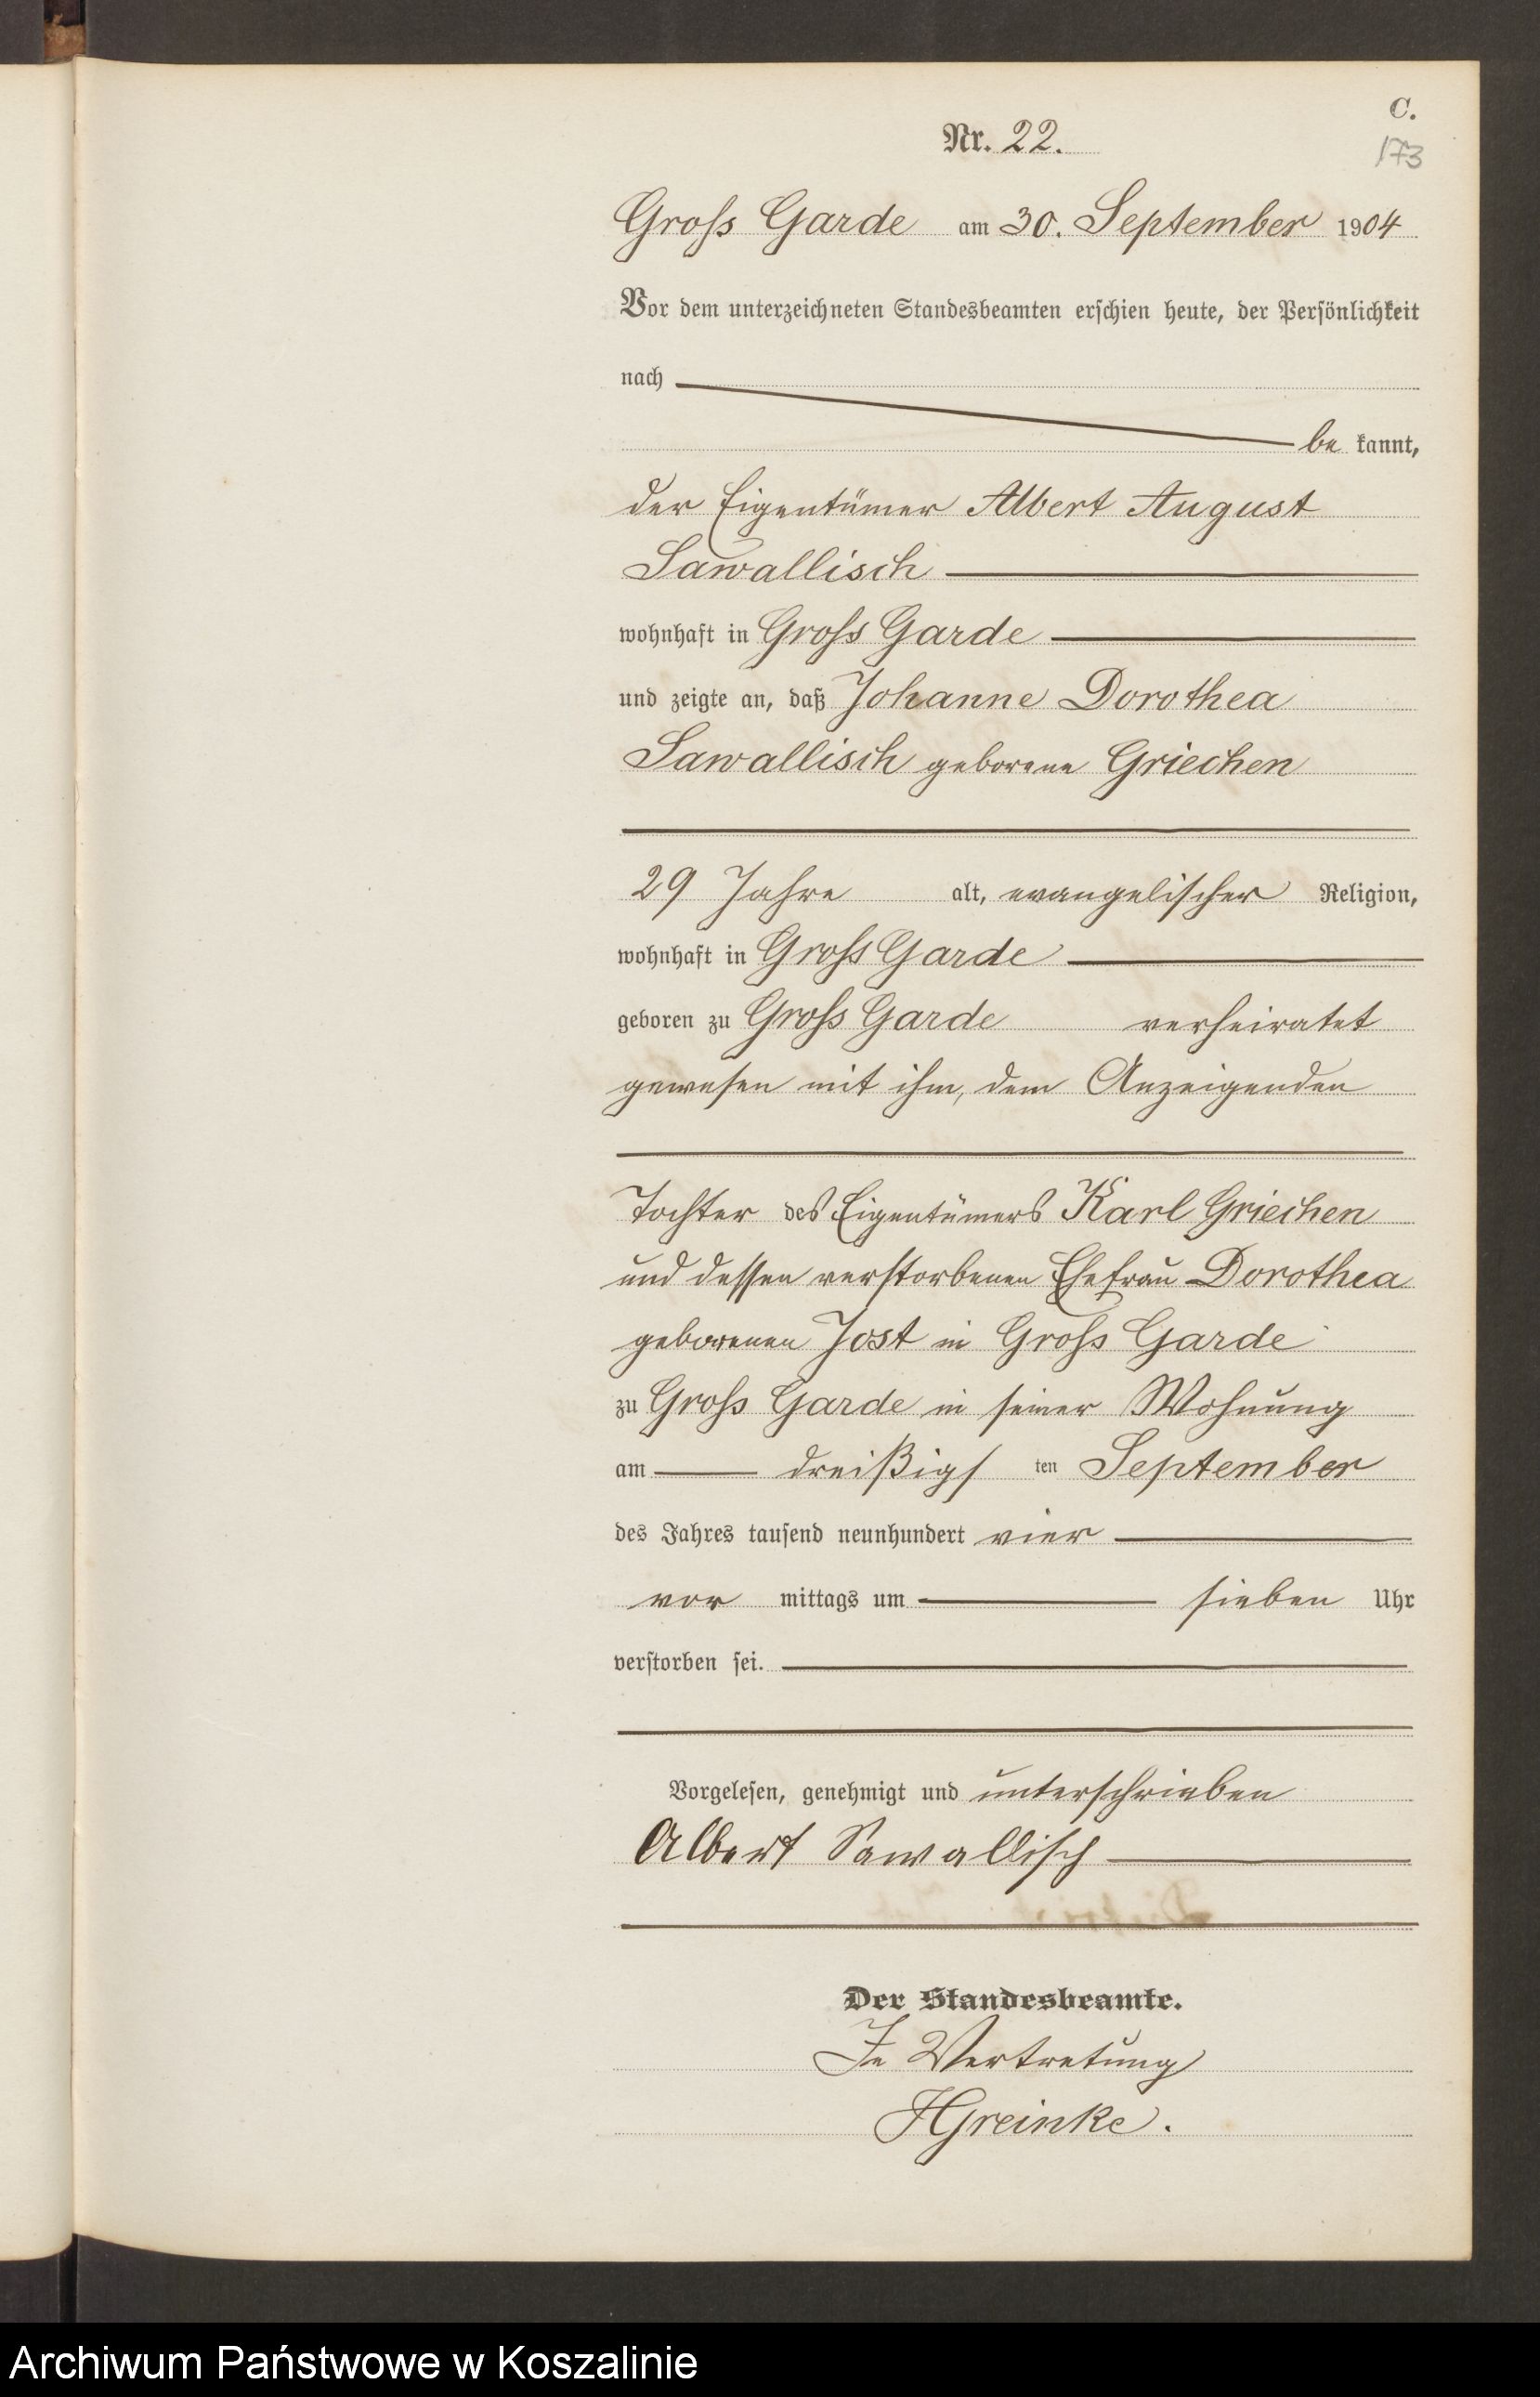 C.
Nr. 22.
173
Groſs Garde am 30. September 1904
Vor dem unterzeichneten Standesbeamten erschien heute, der Persönlichkeit
nach
be kannt,
der Eigentümer Albert August
Sawallisch
wohnhaft in Groſs Garde
und zeigte an, daß Johanne Dorothea
Sawallisch geborene Griechen
29 Jahre alt, evangelischer Religion,
wohnhaft in Groſs Garde
geboren zu Groſs Garde verheiratet
gewesen mit ihm, dem Anzeigenden
Tochter des Eigentümers Karl Griechen
und dessen verstorbenen Ehefrau Dorothea
geborenen Jost in Groſs Garde
zu Groſs Garde in seiner Wohnung
am dreißigs ten September
des Jahres tausend neunhundert vier
vor mittags um sieben Uhr
verstorben sei.
Vorgelesen, genehmigt und unterschrieben
Albert Sawallisch
Der Standesbeamte.
In Vertretung
HGreinke.
Archiwum Państwowe w Koszalinie